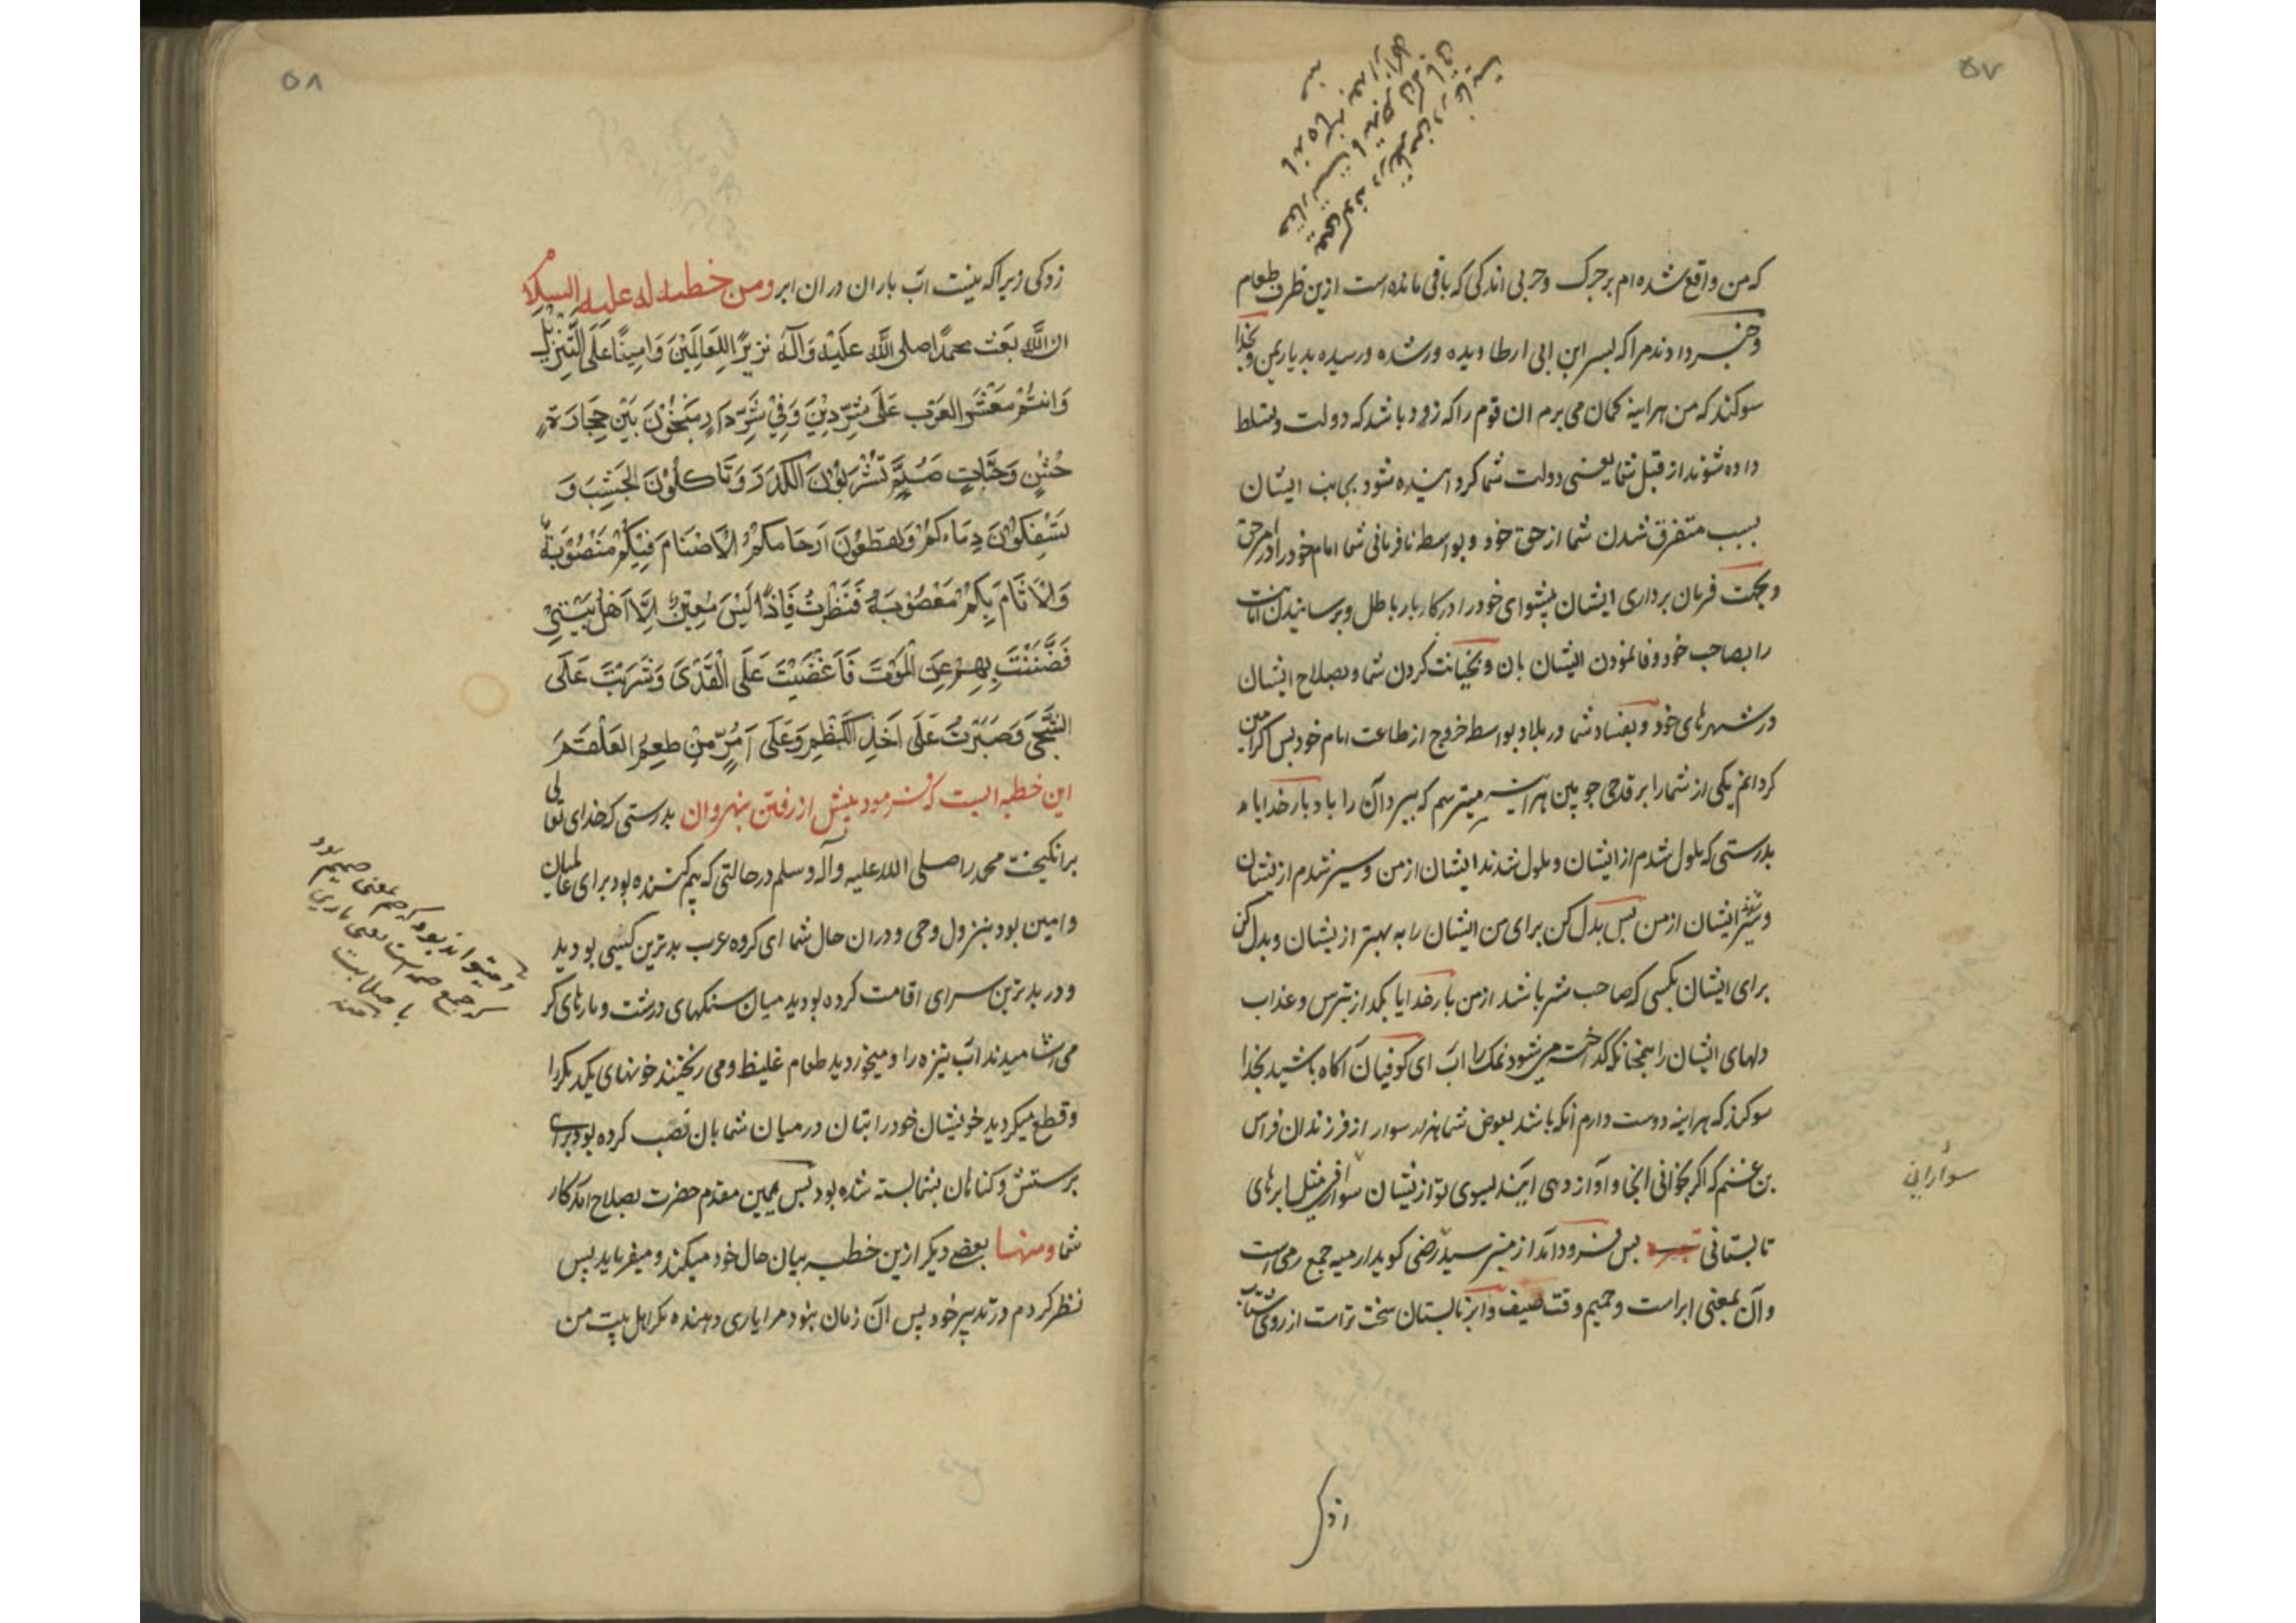 ۵۷
که من واقع شده‌ام بر چرک و چربی اندکی که باقی مانده است ازین ظرف طعام
و خبر دادند مرا که بسر ابن ابی ارطا دیده ور شده و رسیده بدیار یمن و بخدا
سوکند که من هراینه کمان می برم ان قوم را که زود باشد که دولت و تسلط
داده شوند از قبل شما یعنی دولت شما کردانیده شود بجانب ایشان
بسبب متفرق شدن شما از حق خود و بواسطه نافرمانی شما امام خود را در امر حق
و بجهت فرمان برداری ایشان پیشوای خود را در کار بار باطل و برسانیدن امانت
را بصاحب خود و فا نمودن ایشان بان و بخیانت کردن شما و بصلاح ایشان
در شهرهای خود و بفساد شما در بلاد و بواسطه خروج از طاعت امام خود پس اکر امین
کردانم یکی از شما را بر قدحی چوبین هراینه میترسم که ببرد آن را با د بار خدایا
بدرستی که ملول شدم از ایشان و ملول شدند ایشان از من و سیر شدم از یشان
و سیر شدند ایشان از من پس بدل کن برای من ایشان را به بهتر از یشان و بدل کن
برای ایشان بکسی که صاحب شر باشد از من بار خدایا بکداز بترس و عذاب
دلهای ایشان را همچنانکه کداخته می شود نمک را اب ای کوفیان آکاه باشید بخدا
سوکند که هراینه دوست دارم آنکه باشد بعوض شما هزار سوار از فرزندان فراس
بن غنم که اکر بخوانی انجا و آواز دهی ایند بسوی تو از یشان سوارانی مثل ابرهای
سوارانی
تابستانی پس فرود آمد از منبر سید رضی کوید ارمیه جمع رمی است
و آن بمعنی ابر است و حمیم وقت صیف و ابر تابستان سخت تر است از روی شتاب
زدکی
۵۸
زدکی زیرا که نیست اب باران در ان ابر ومن خطبة له علیه السلام
ان الله بعث محمدا صلی الله علیه وآله نذیرا للعالمین وامینا علی التنزیل
وانتم معشر العرب علی شر دین وفی شر دار منیخون بین حجارة
خشن وحیات صم تشربون الکدر وتاکلون الجشب و
تسفکون دماءکم وتقطعون ارحامکم الاصنام فیکم منصوبة
والاثام بکم معصوبة فنظرت فاذا لیس معین الا اهل بیتی
فضننت بهم عن الموت فاغضیت علی القذی وشربت علی
الشجی وصبرت علی اخذ الکظم وعلی امر من طعم العلقم
این خطبه ایست که فرمود پیش از رفتن بنهروان بدرستی که خدای تعالی
برانکیخت محمد را صلی الله علیه وآله وسلم در حالتی که بیم کننده بود برای عالمیان
و امین بود بنزول وحی و دران حال شما ای کروه عرب بدترین کیشی بودید
و در بدترین سرای اقامت کرده بودید میان سنکهای درشت و مارهای کر
می آشامیدند اب تیره را و میخوردید طعام غلیظ و می ریختند خونهای یکدیکر را
و قطع میکردید خویشان خود را بتان در میان شما بان نصب کرده بود برای
پرستش و کناهان بشما بسته شده بود پس همین مقدم حضرت بصلاح امد کار
شما ومنها بعضی دیکر ازین خطبه بیان حال خود میکند و میفرماید پس
نظر کردم در تدبیر خود پس آن زمان نبود مرا یاری دهنده مکر اهل بیت من
و میتواند بود که صم بمعنی صمیم بود
که جمع صمه است یعنی ماری
با صلابت
منه